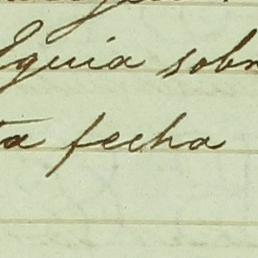 Eguia sobr
ta fecha